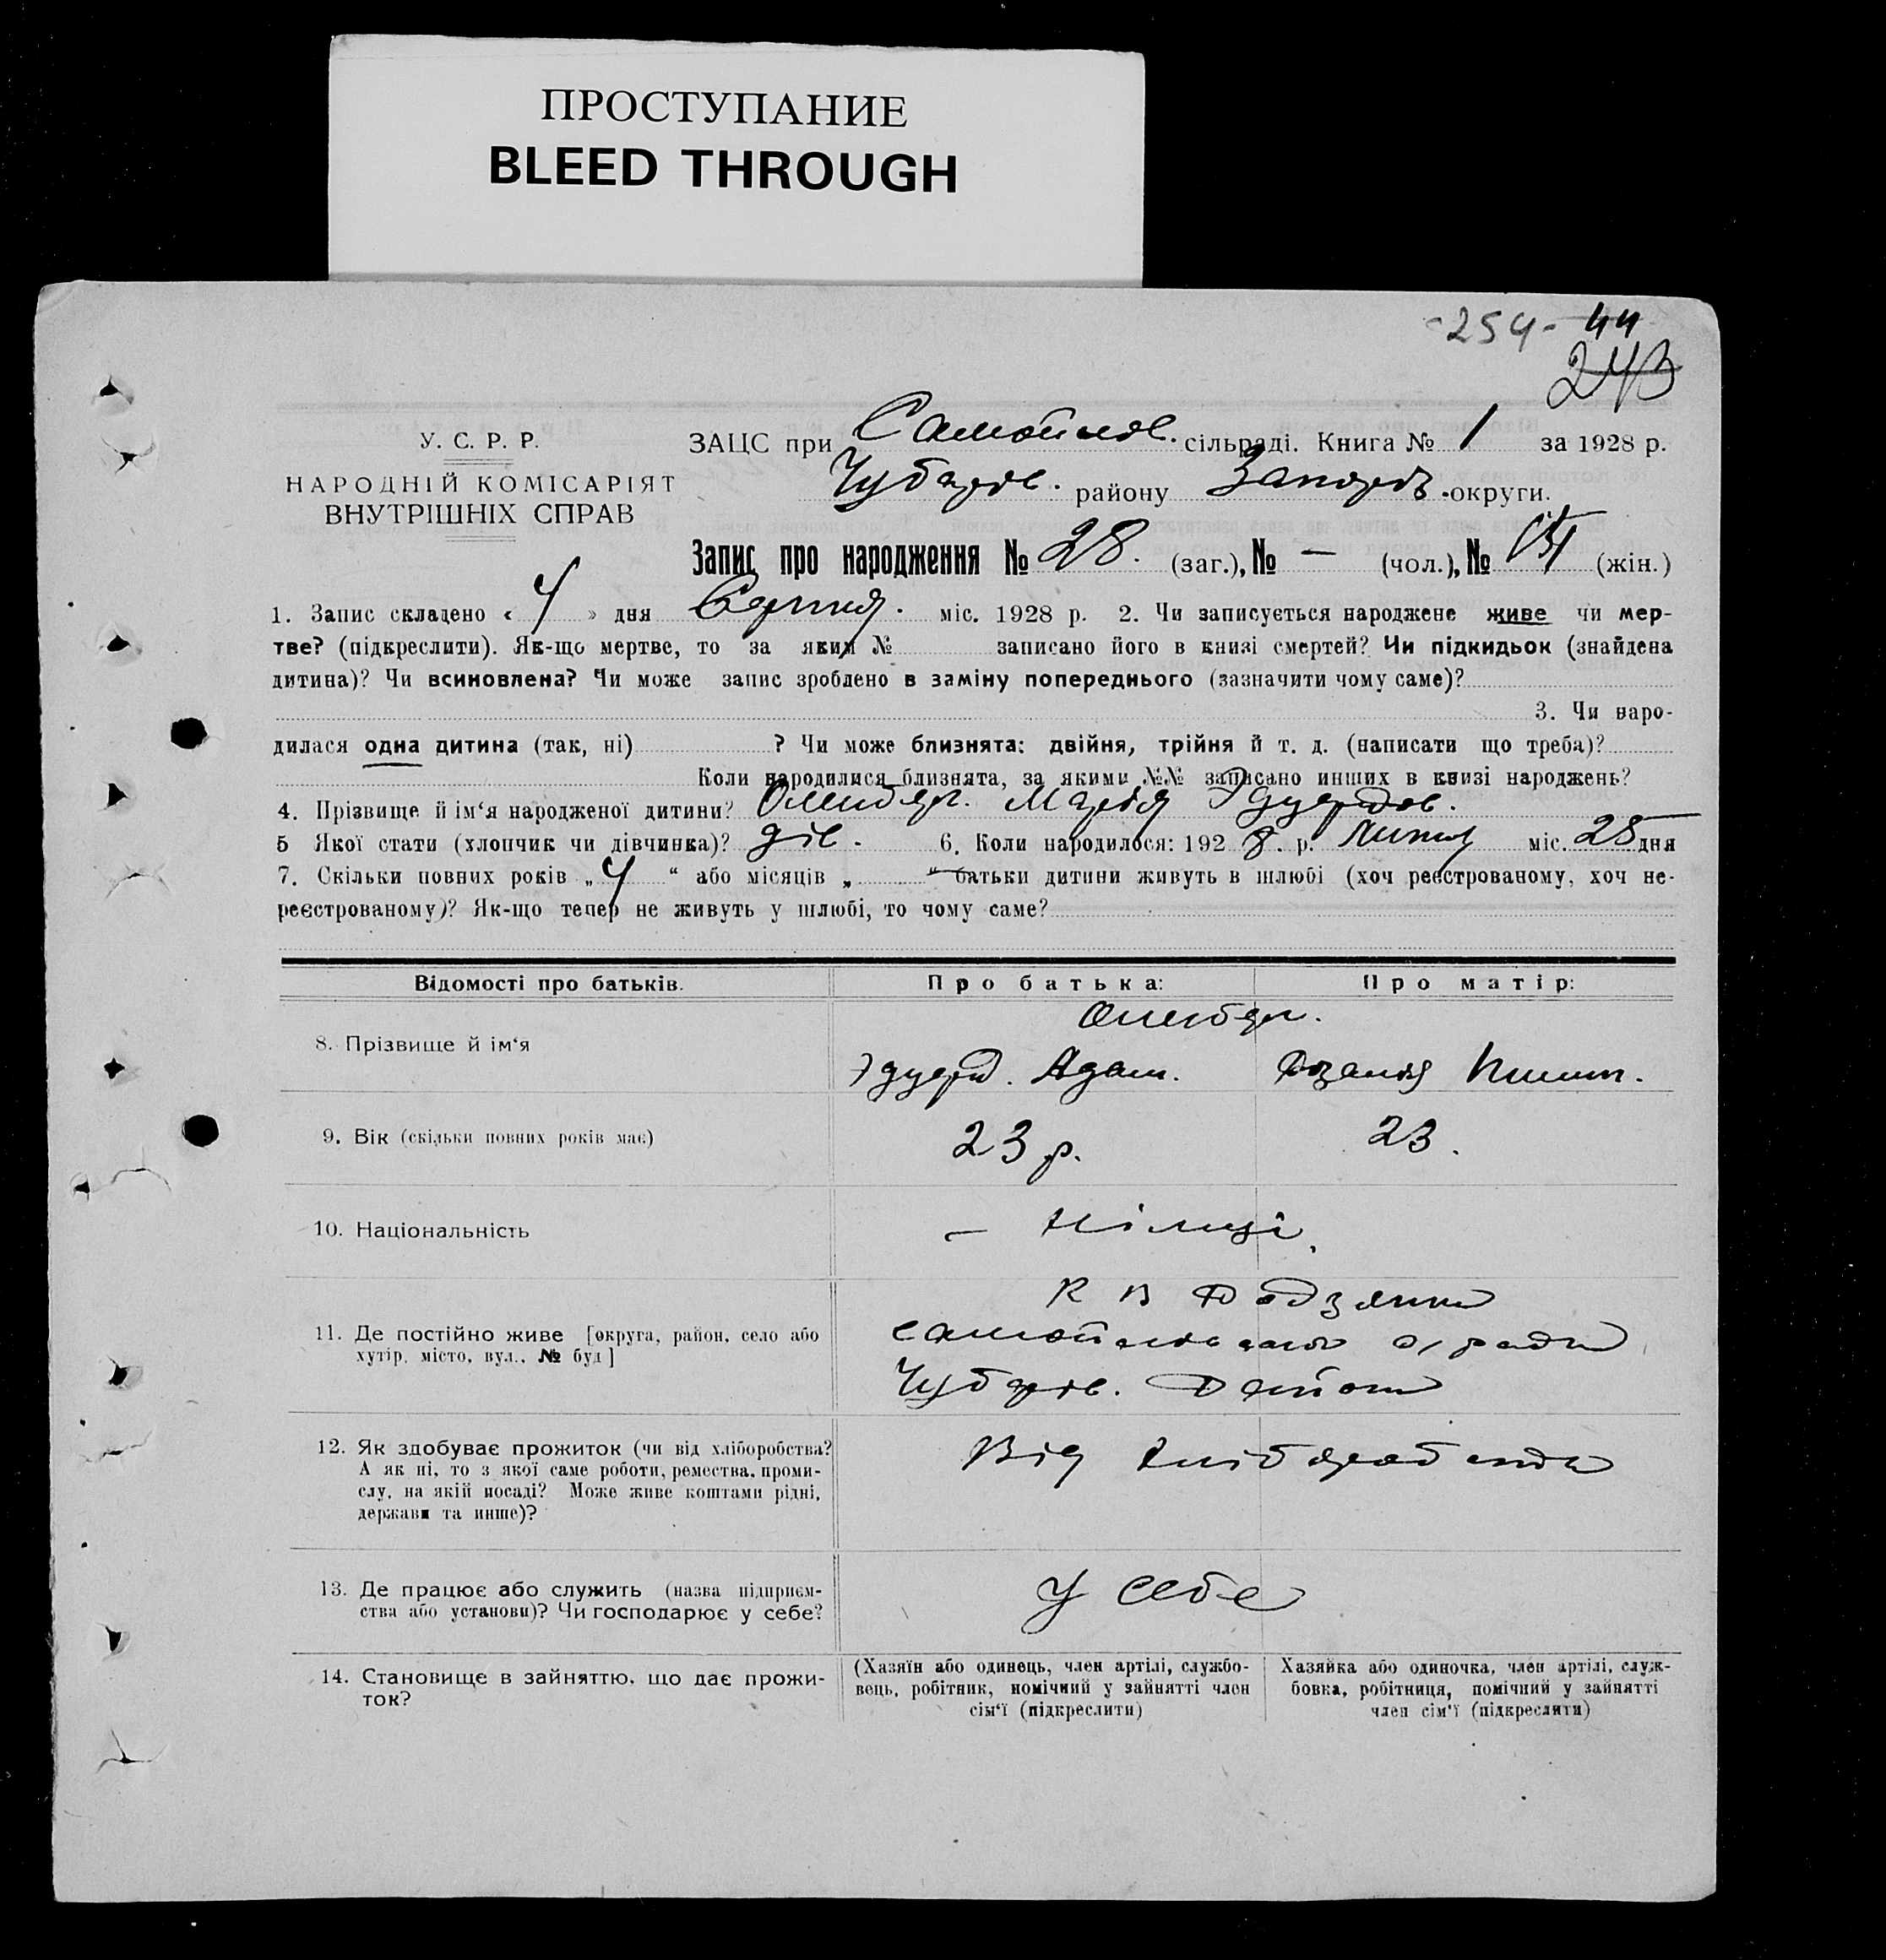 ПРОСТУПАНИЕ
BLEED THROUGH
- 254 - 44
243
У. С. Р. Р.
НАРОДНІЙ КОМІСАРІЯТ
ВНУТРІШНІХ СПРАВ
ЗАЦС при Самойлов. сільраді. Книга № 1 за 1928 р.
Чубарів. району Запоріз. округи.
Запис про народження № 28. (заг.), № — (чол.), № (жін.)
1. Запис складено « 4 » дня Серпня. міс. 1928 р. 2. Чи записується народжене живе чи мер-
тве? (підкреслити). Як-що мертве, то за яким № записано його в книзі смертей? Чи підкидьок (знайдена
дитина)? Чи всиновлена? Чи може запис зроблено в заміну попереднього (зазначити чому саме)?
3. Чи наро-
дилася одна дитина (так, ні) ? Чи може близнята: двійня, трійня й т. д. (написати що треба)?
Коли народилися близнята, за якими №№ записано инших в книзі народжень?
4. Прізвище й ім‘я народженої дитини? Марія Эдуардов.
5 Якої стати (хлопчик чи дівчинка)? дів. 6. Коли народилося: 192 8. р. Липня міс. 25 дня
7. Скільки повних років „ 4 “ або місяців „ “ батьки дитини живуть в шлюбі (хоч реєстрованому, хоч не-
реєстрованому)? Як-що тепер не живуть у шлюбі, то чому саме?
Відомості про батьків.
Про батька:
Про матір:
8. Прізвище й ім‘я
Эдуард. Адам.
9. Вік (скільки повних років має)
23 р.
23.
10. Національність
— Німці.
11. Де постійно живе [округа, район, село або
хутір, місто, вул., № буд]
Самойлівської с/ради
Чубарів. Району
12. Як здобуває прожиток (чи від хліборобства?
А як ні, то з якої саме роботи, ремества, проми-
слу, на якій посаді? Може живе коштами рідні,
держави та инше)?
Від хліборобства
13. Де працює або служить (назва підприєм-
ства або установи)? Чи господарює у себе?
У себе
14. Становище в зайняттю, що дає прожи-
ток?
(Хазяїн або одинець, член артілі, службо-
вець, робітник, помічний у зайнятті член
сім‘ї (підкреслити)
Хазяйка або одиночка, член артілі, служ-
бовка, робітниця, помічний у зайнятті
член сім‘ї (підкреслити)